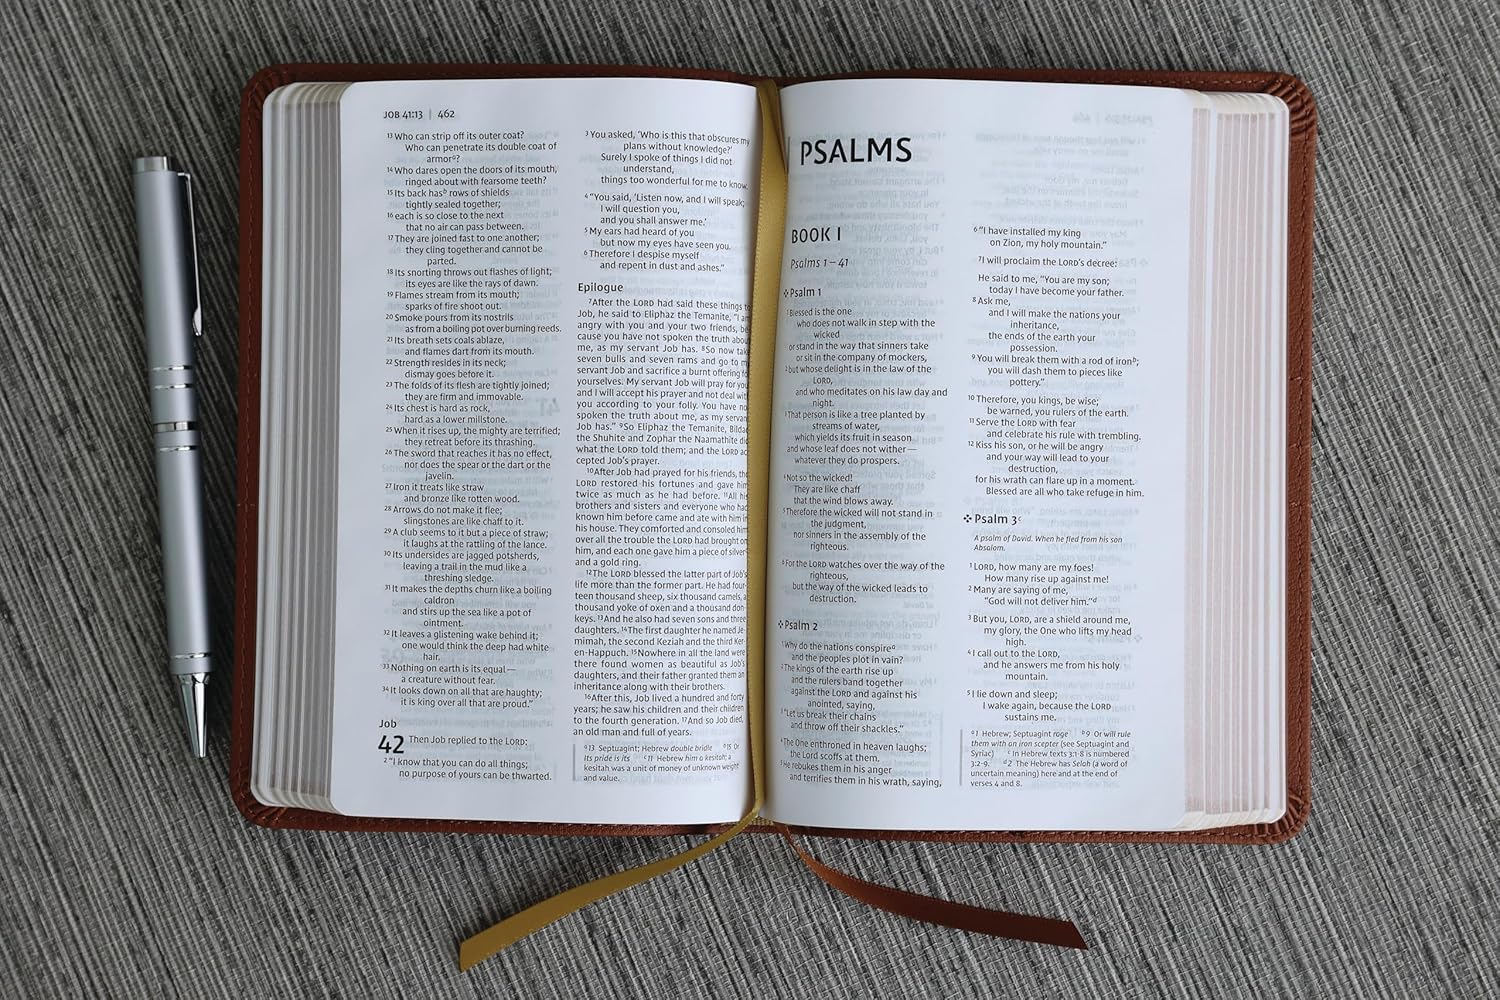 JOB 41:13 | 462
13 Who can strip off its outer coat?
Who can penetrate its double coat of
armor a?
14 Who dares open the doors of its mouth,
ringed about with fearsome teeth?
15 Its back has b rows of shields
tightly sealed together;
16 each is so close to the next
that no air can pass between.
17 They are joined fast to one another;
they cling together and cannot be
parted.
18 Its snorting throws out flashes of light;
its eyes are like the rays of dawn.
19 Flames stream from its mouth;
sparks of fire shoot out.
20 Smoke pours from its nostrils
as from a boiling pot over burning reeds.
21 Its breath sets coals ablaze,
and flames dart from its mouth.
22 Strength resides in its neck;
dismay goes before it.
23 The folds of its flesh are tightly joined;
they are firm and immovable.
24 Its chest is hard as rock,
hard as a lower millstone.
25 When it rises up, the mighty are terrified;
they retreat before its thrashing.
26 The sword that reaches it has no effect,
nor does the spear or the dart or the
javelin.
27 Iron it treats like straw
and bronze like rotten wood.
28 Arrows do not make it flee;
slingstones are like chaff to it.
29 A club seems to it but a piece of straw;
it laughs at the rattling of the lance.
30 Its undersides are jagged potsherds,
leaving a trail in the mud like a
threshing sledge.
31 It makes the depths churn like a boiling
caldron
and stirs up the sea like a pot of
ointment.
32 It leaves a glistening wake behind it;
one would think the deep had white
hair.
33 Nothing on earth is its equal—
a creature without fear.
34 It looks down on all that are haughty;
it is king over all that are proud."
Job
42 Then Job replied to the LORD:
2 "I know that you can do all things;
no purpose of yours can be thwarted.
3 You asked, 'Who is this that obscures my
plans without knowledge?'
Surely I spoke of things I did not
understand,
things too wonderful for me to know.
4 "You said, 'Listen now, and I will speak;
I will question you,
and you shall answer me.'
5 My ears had heard of you
but now my eyes have seen you.
6 Therefore I despise myself
and repent in dust and ashes."
Epilogue
7 After the LORD had said these things to
Job, he said to Eliphaz the Temanite, "I am
angry with you and your two friends, be
cause you have not spoken the truth about
me, as my servant Job has. 8 So now take
seven bulls and seven rams and go to my
servant Job and sacrifice a burnt offering for
yourselves. My servant Job will pray for you,
and I will accept his prayer and not deal with
you according to your folly. You have not
spoken the truth about me, as my servant
Job has." 9 So Eliphaz the Temanite, Bildad
the Shuhite and Zophar the Naamathite did
what the LORD told them; and the LORD ac
cepted Job's prayer.
10 After Job had prayed for his friends, the
LORD restored his fortunes and gave him
twice as much as he had before. 11 All his
brothers and sisters and everyone who had
known him before came and ate with him in
his house. They comforted and consoled him
over all the trouble the LORD had brought on
him, and each one gave him a piece of silver c
and a gold ring.
12 The LORD blessed the latter part of Job's
life more than the former part. He had four-
teen thousand sheep, six thousand camels, a
thousand yoke of oxen and a thousand don-
keys. 13 And he also had seven sons and three
daughters. 14 The first daughter he named Je-
mimah, the second Keziah and the third Ker-
en-Happuch. 15 Nowhere in all the land were
there found women as beautiful as Job's
daughters, and their father granted them an
inheritance along with their brothers.
16 After this, Job lived a hundred and forty
years; he saw his children and their children
to the fourth generation. 17 And so Job died,
an old man and full of years.
a 13 Septuagint; Hebrew double bridle b 15 Or
Its pride is its c 11 Hebrew him a kesitah; a
kesitah was a unit of money of unknown weight
and value.
PSALMS
BOOK I
Psalms 1–41
Psalm 1
1 Blessed is the one
who does not walk in step with the
wicked
or stand in the way that sinners take
or sit in the company of mockers,
2 but whose delight is in the law of the
LORD,
and who meditates on his law day and
night.
3 That person is like a tree planted by
streams of water,
which yields its fruit in season
and whose leaf does not wither—
whatever they do prospers.
4 Not so the wicked!
They are like chaff
that the wind blows away.
5 Therefore the wicked will not stand in
the judgment,
nor sinners in the assembly of the
righteous.
6 For the LORD watches over the way of the
righteous,
but the way of the wicked leads to
destruction.
Psalm 2
1 Why do the nations conspire a
and the peoples plot in vain?
2 The kings of the earth rise up
and the rulers band together
against the LORD and against his
anointed, saying,
3 "Let us break their chains
and throw off their shackles."
4 The One enthroned in heaven laughs;
the Lord scoffs at them.
5 He rebukes them in his anger
and terrifies them in his wrath, saying,
6 "I have installed my king
on Zion, my holy mountain."
7 I will proclaim the LORD's decree:
He said to me, "You are my son;
today I have become your father.
8 Ask me,
and I will make the nations your
inheritance,
the ends of the earth your
possession.
9 You will break them with a rod of iron b;
you will dash them to pieces like
pottery."
10 Therefore, you kings, be wise;
be warned, you rulers of the earth.
11 Serve the LORD with fear
and celebrate his rule with trembling.
12 Kiss his son, or he will be angry
and your way will lead to your
destruction,
for his wrath can flare up in a moment.
Blessed are all who take refuge in him.
Psalm 3 c
A psalm of David. When he fled from his son
Absalom.
1 LORD, how many are my foes!
How many rise up against me!
2 Many are saying of me,
"God will not deliver him." d
3 But you, LORD, are a shield around me,
my glory, the One who lifts my head
high.
4 I call out to the LORD,
and he answers me from his holy
mountain.
5 I lie down and sleep;
I wake again, because the LORD
sustains me.
a 1 Hebrew; Septuagint rage b 9 Or will rule
them with an iron scepter (see Septuagint and
Syriac) c In Hebrew texts 3:1-8 is numbered
3:2-9. d 2 The Hebrew has Selah (a word of
uncertain meaning) here and at the end of
verses 4 and 8.